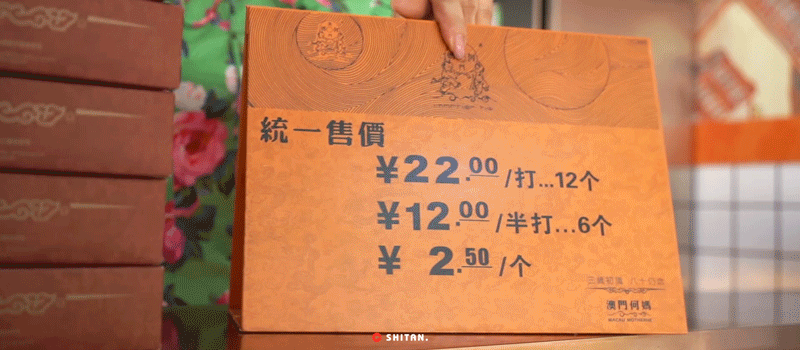 統一售價
¥22.00/打...12个
¥12.00/半打...6个
¥ 2.50/个
澳門何媽
SHITAN.